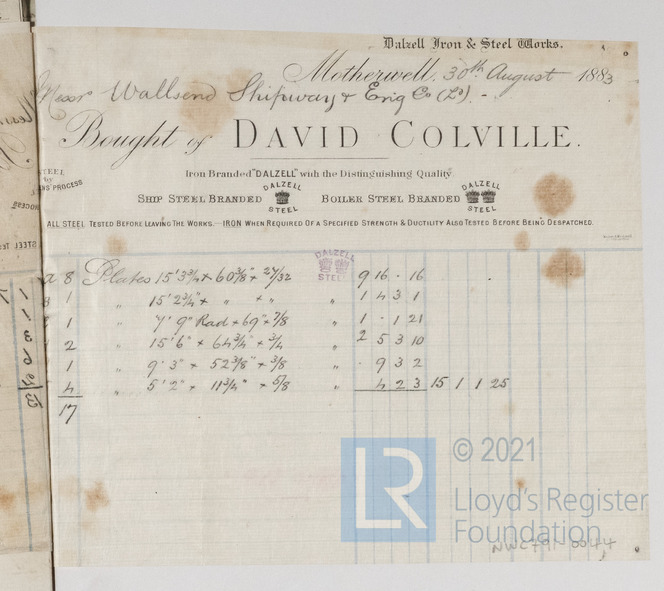 Dalzell Iron & Steel Works.
Motherwell, 30th August 1883
Messr Wallsend Shipway & Eng Co (Ld). -
Bought of DAVID COLVILLE.
Iron Branded "DALZELL" with the Distinguishing Quality.
SHIP STEEL BRANDED DALZELL STEEL BOILER STEEL BRANDED DALZELL STEEL
ALL STEEL TESTED BEFORE LEAVING THE WORKS.—IRON WHEN REQUIRED OF A SPECIFIED STRENGTH & DUCTILITY ALSO TESTED BEFORE BEING DESPATCHED.
DALZELL STEEL
8 Plates 15' 3¾ × 60⅜" × 27/32 9 16 · 16
1 " 15' 2¾" × " × " " 1 4 3 1
1 " 7' 9" Rad × 69" × ⅞ " 1 · 1 21
2 " 15' 6" × 64¾" × ¾ " 2 5 3 10
1 " 9' 3" × 52⅜" × ⅜ " · 9 3 2
4 " 5' 2" × 11¾" × ⅝ " 4 2 3 15 1 1 25
17
© 2021
LR
Lloyd's Register
Foundation
NWC791-0044
STEEL
by
PROCESS